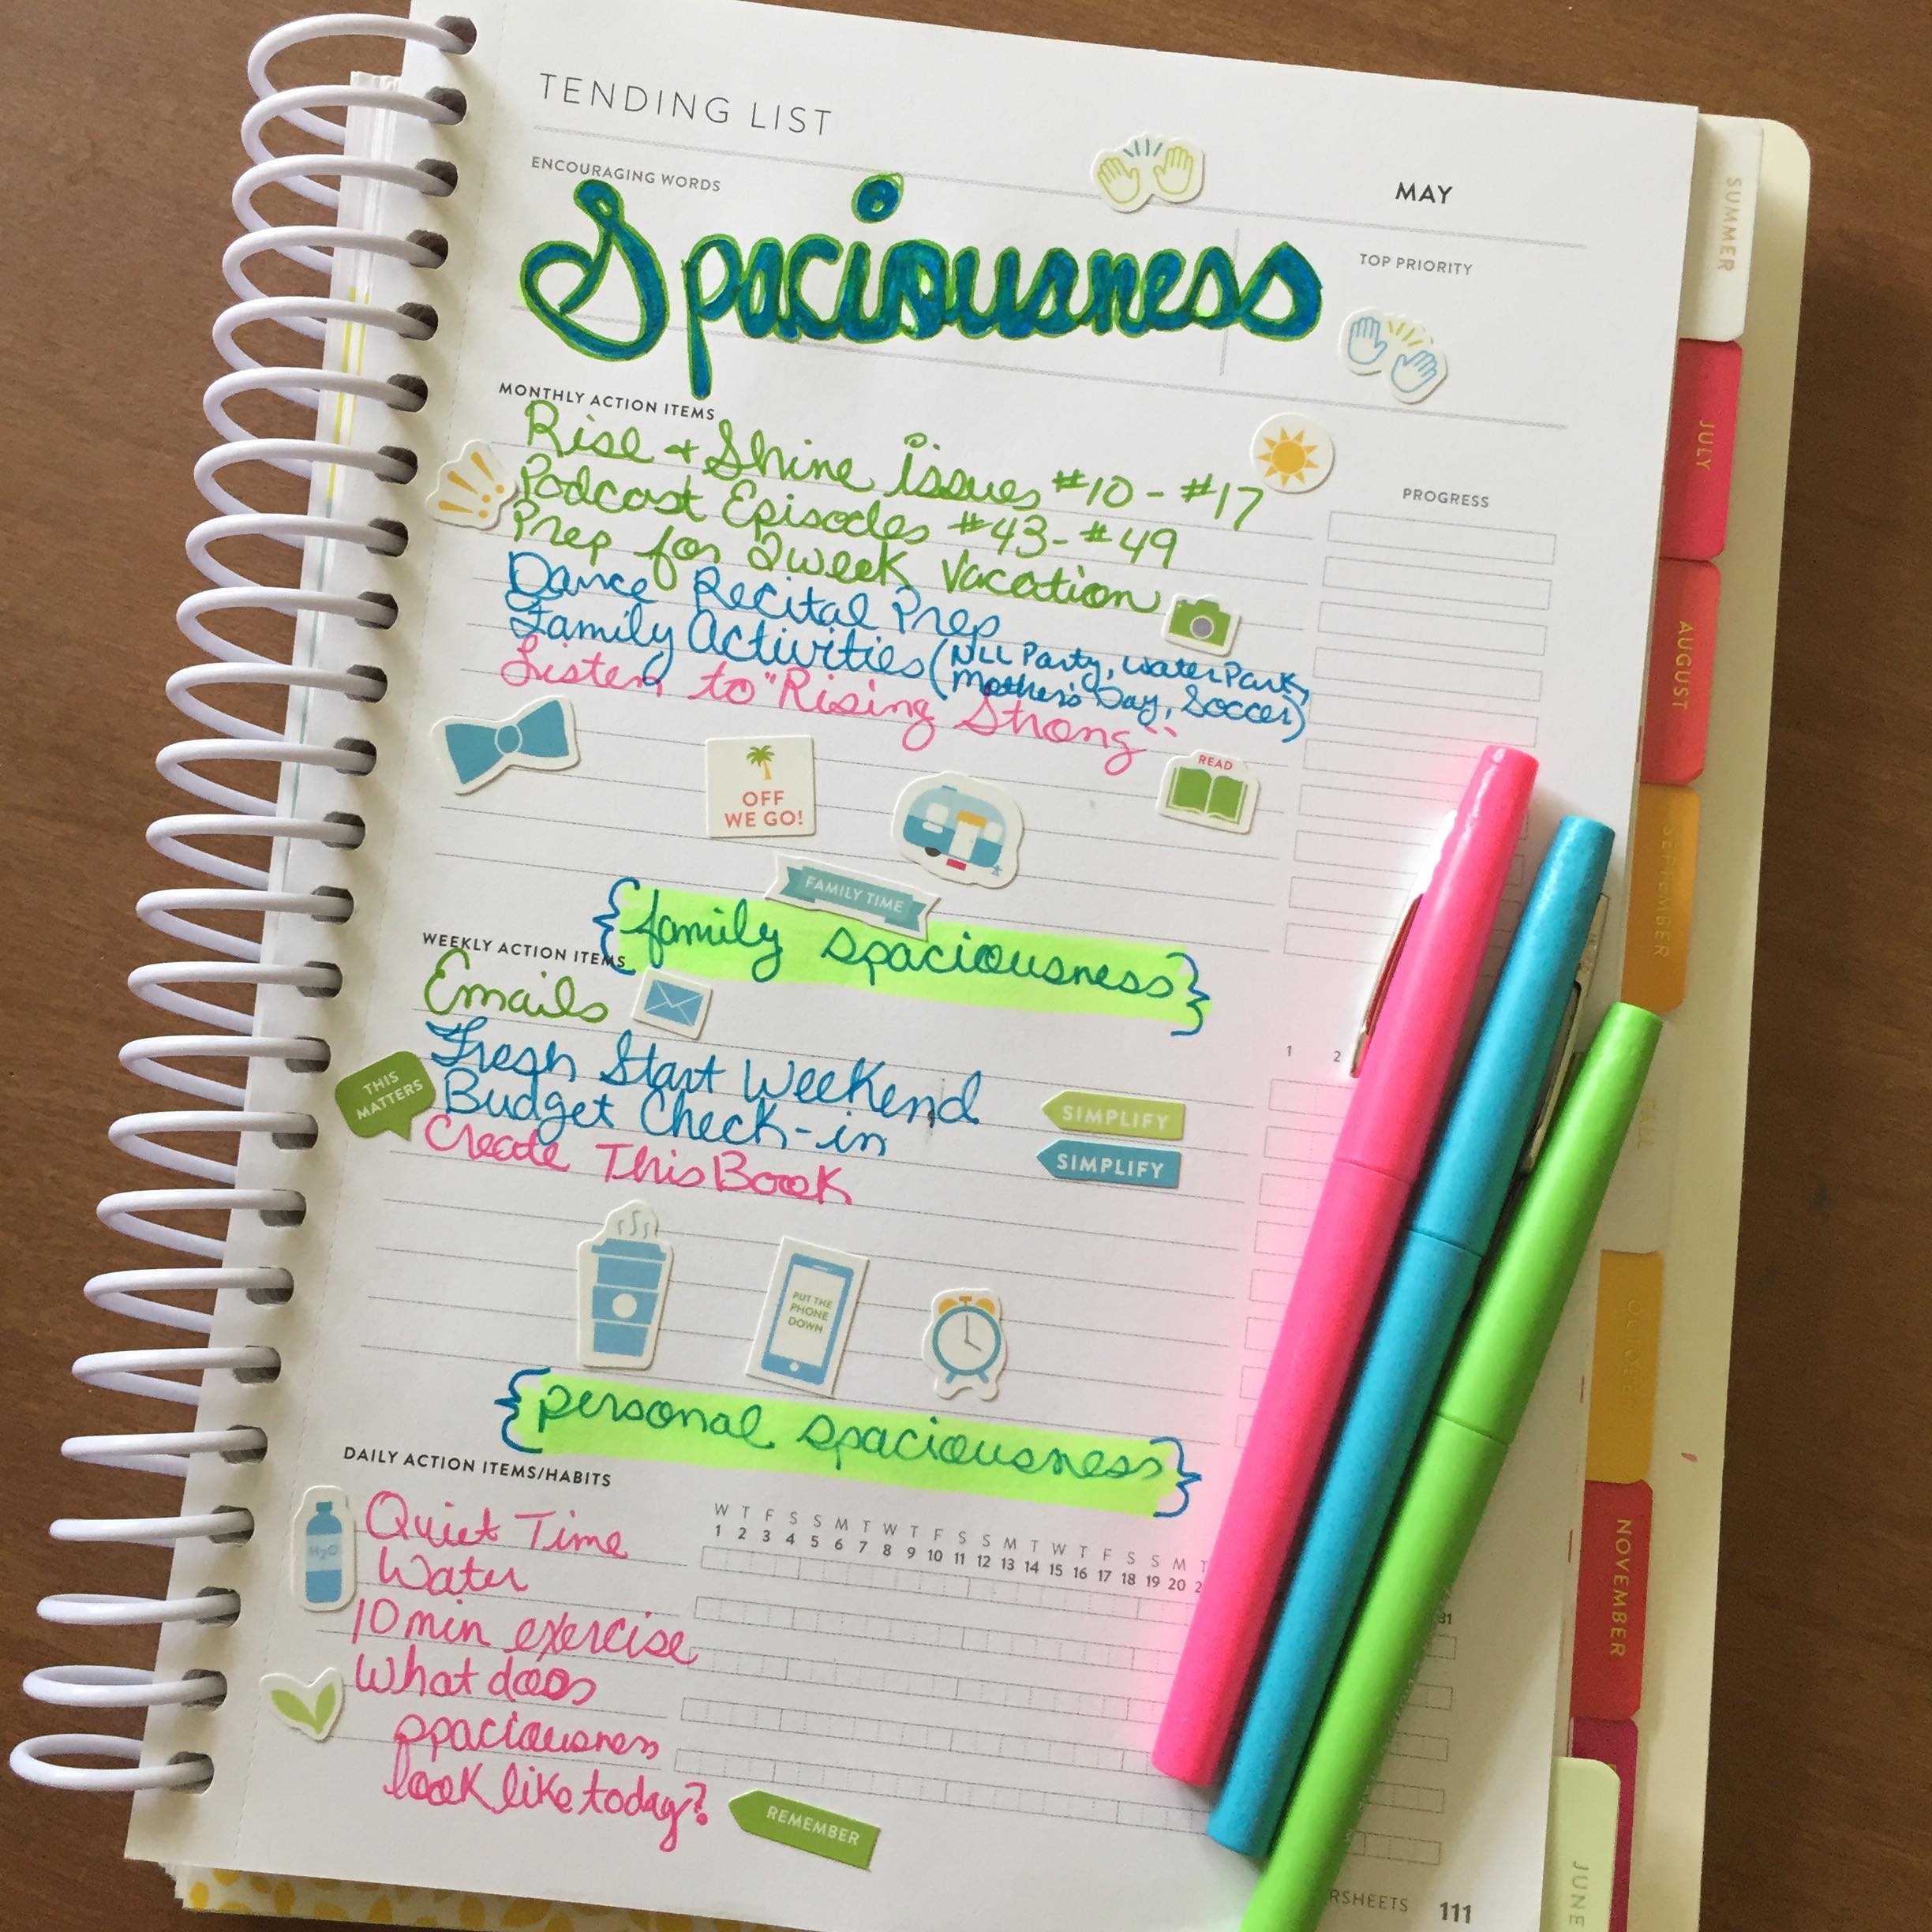 TENDING LIST
ENCOURAGING WORDS
MAY
Spaciousness
TOP PRIORITY
MONTHLY ACTION ITEMS
Rise + Shine issues #10 - #17
PROGRESS
Podcast Episodes #43 - #49
Prep for 2 week Vacation
Dance Recital Prep
Family Activities (NLL Party, Water Park,
Mother's Day, Soccer)
Listen to "Rising Strong"
OFF
WE GO!
READ
FAMILY TIME
{family spaciousness}
WEEKLY ACTION ITEMS
Emails
1 2
Fresh Start Weekend
THIS
MATTERS
Budget Check-in
SIMPLIFY
Create This Book
SIMPLIFY
PUT THE
PHONE
DOWN
{personal spaciousness}
DAILY ACTION ITEMS/HABITS
W T F S S M T W T F S S M T W T F S S M T
1 2 3 4 5 6 7 8 9 10 11 12 13 14 15 16 17 18 19 20 2
31
H₂O
Quiet Time
Water
10 min exercise
What does
spaciousness
look like today?
REMEMBER
RSHEETS 111
SUMMER
JULY
AUGUST
SEPTEMBER
FALL
OCTOBER
NOVEMBER
JUNE